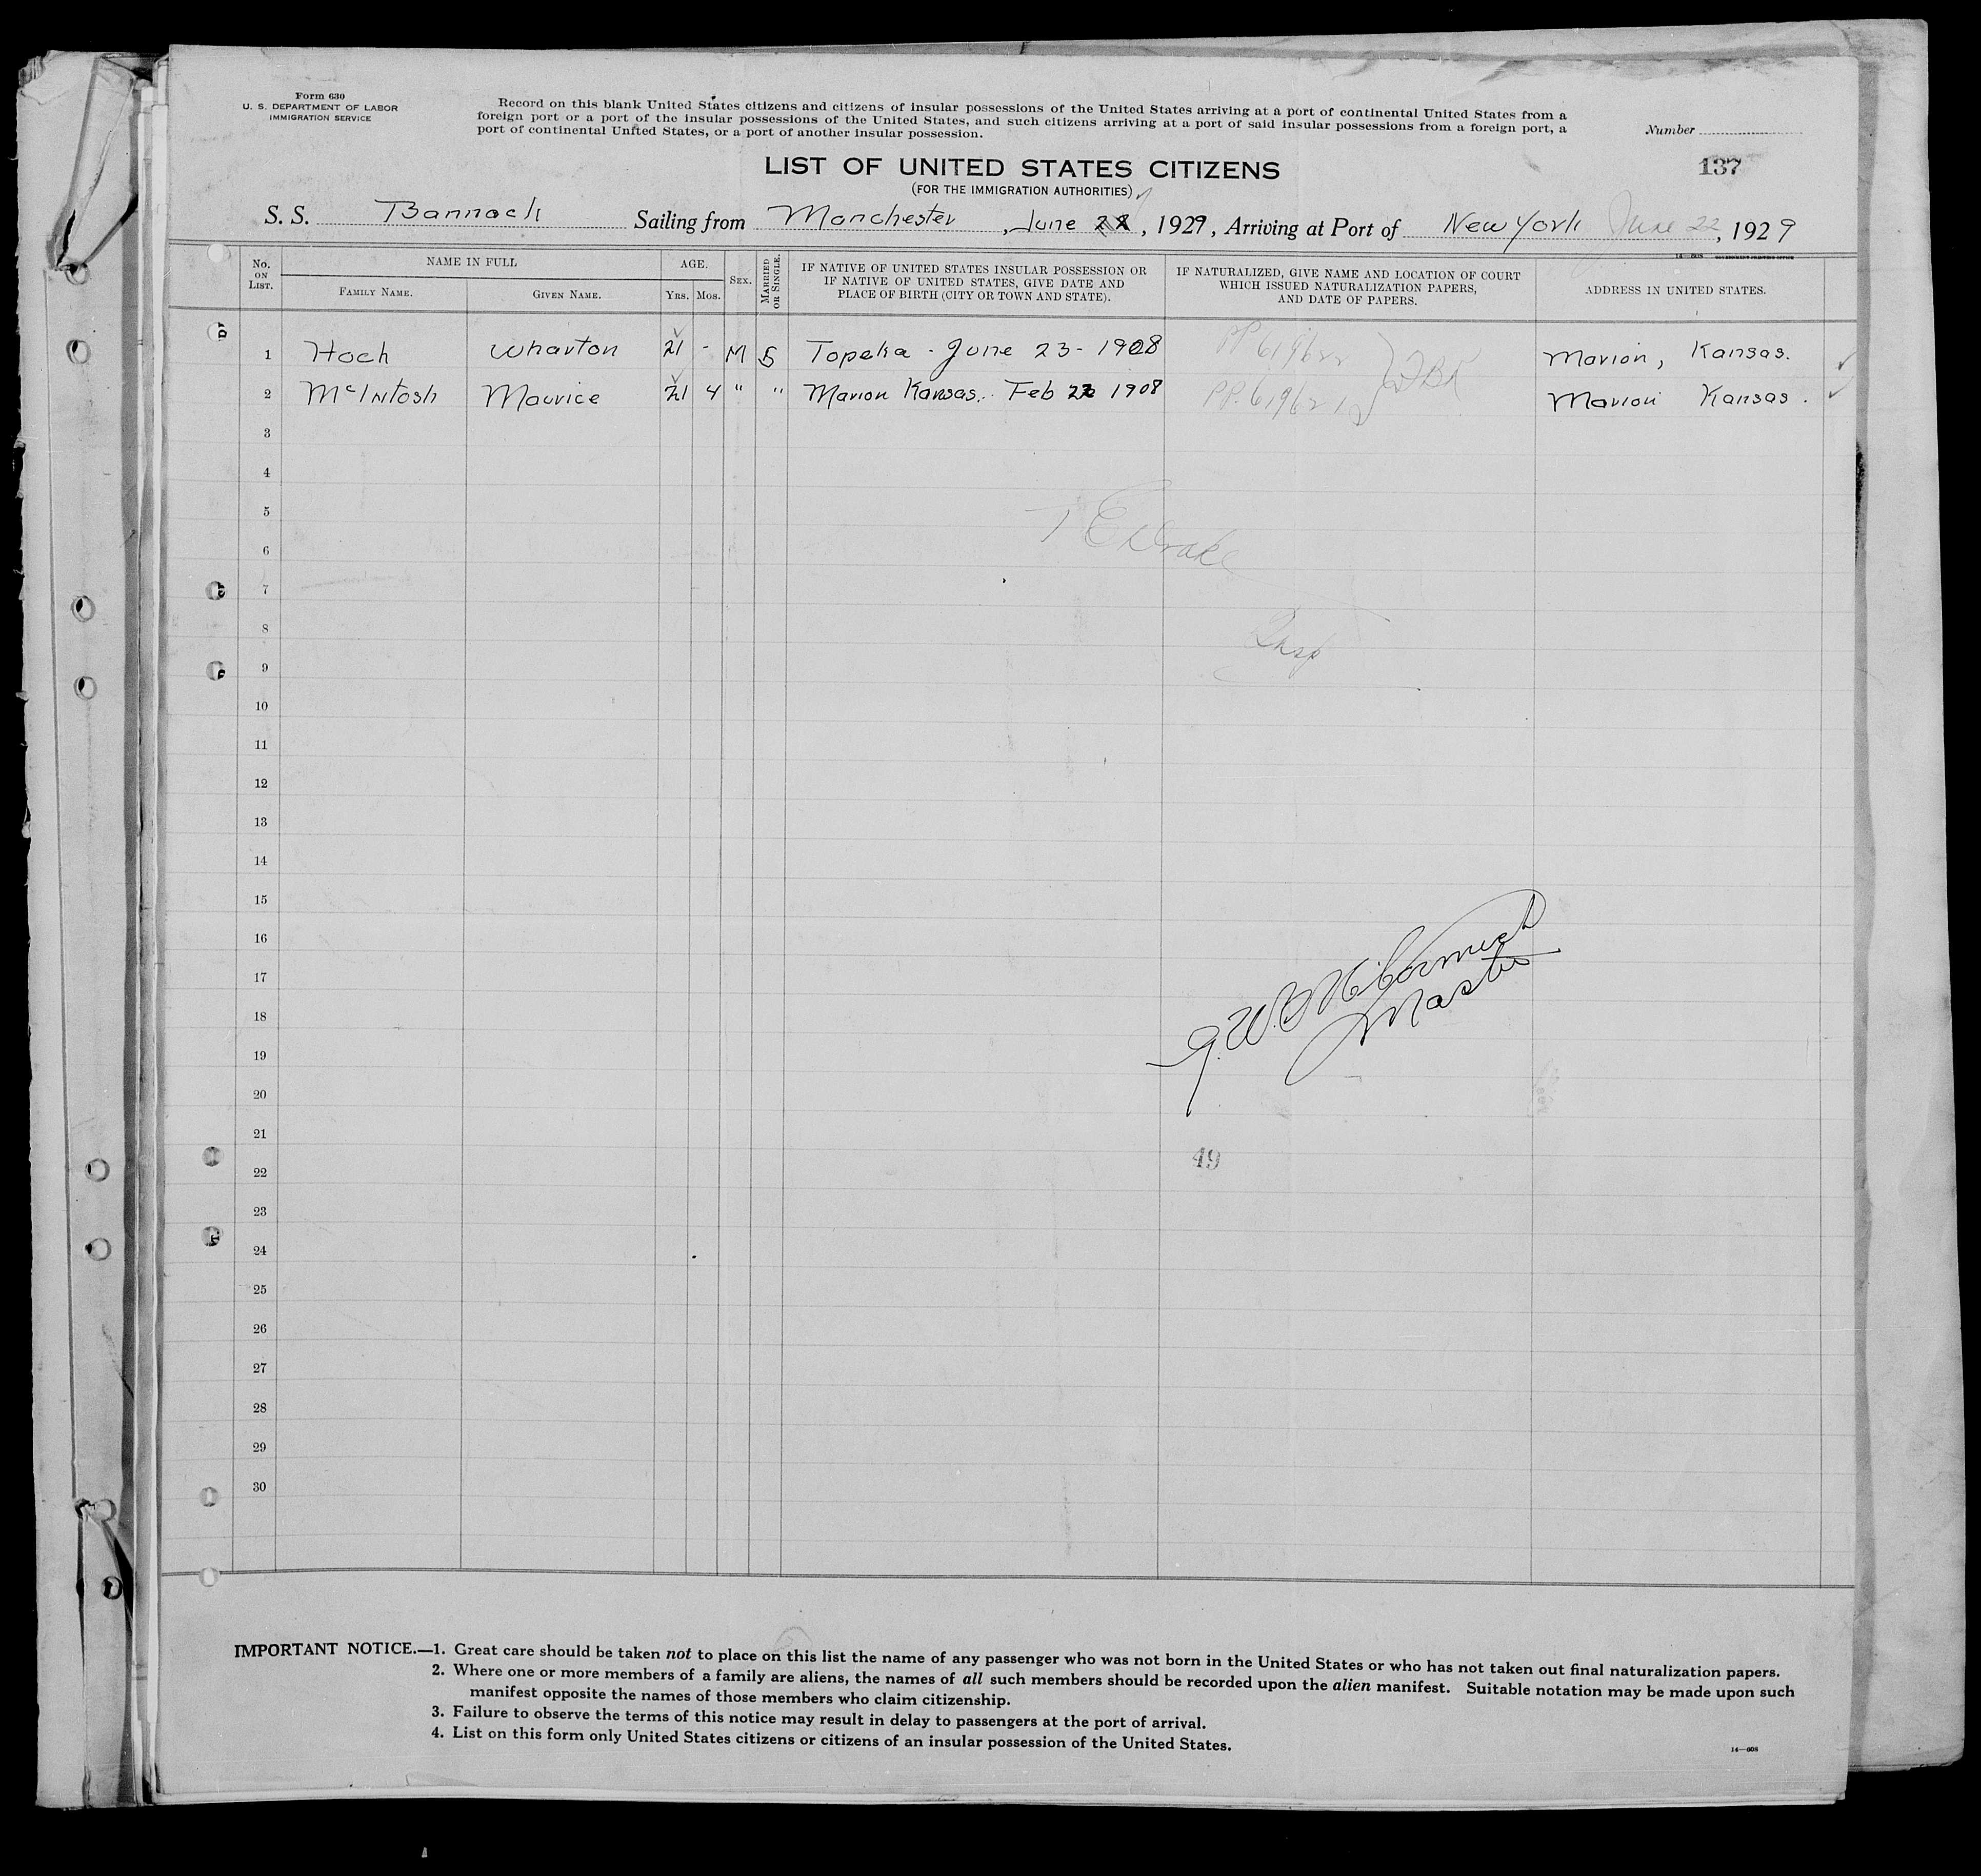 Form 630
U. S. DEPARTMENT OF LABOR
IMMIGRATION SERVICE
Record on this blank United States citizens and citizens of insular possessions of the United States arriving at a port of continental United States from a
foreign port or a port of the insular possessions of the United States, and such citizens arriving at a port of said insular possessions from a foreign port, a
port of continental United States, or a port of another insular possession.
Number
137
LIST OF UNITED STATES CITIZENS
(FOR THE IMMIGRATION AUTHORITIES)
S. S. Bannack Sailing from Manchester, June , 1929, Arriving at Port of New York June 22, 1929
14—608 GOVERNMENT PRINTING OFFICE
No. ON LIST. NAME IN FULL AGE. SEX. MARRIED OR SINGLE. IF NATIVE OF UNITED STATES INSULAR POSSESSION OR IF NATIVE OF UNITED STATES, GIVE DATE AND PLACE OF BIRTH (CITY OR TOWN AND STATE). IF NATURALIZED, GIVE NAME AND LOCATION OF COURT WHICH ISSUED NATURALIZATION PAPERS, AND DATE OF PAPERS. ADDRESS IN UNITED STATES.
FAMILY NAME. GIVEN NAME. YRS. MOS.
1 Hoch Wharton 21 - M S Topeka - June 23 - 1908 PP 619622 Marion, Kansas.
2 McIntosh Maurice 21 4 " " Marion Kansas. Feb 1908 PP. 619621 Marion Kansas.
3
4
5
T E Drake
6
7
8
Insp
9
10
11
12
13
14
15
16
17
18
Master
19
20
21
49
22
23
24
25
26
27
28
29
30
IMPORTANT NOTICE.—1. Great care should be taken not to place on this list the name of any passenger who was not born in the United States or who has not taken out final naturalization papers.
2. Where one or more members of a family are aliens, the names of all such members should be recorded upon the alien manifest. Suitable notation may be made upon such
manifest opposite the names of those members who claim citizenship.
3. Failure to observe the terms of this notice may result in delay to passengers at the port of arrival.
4. List on this form only United States citizens or citizens of an insular possession of the United States.
14—608